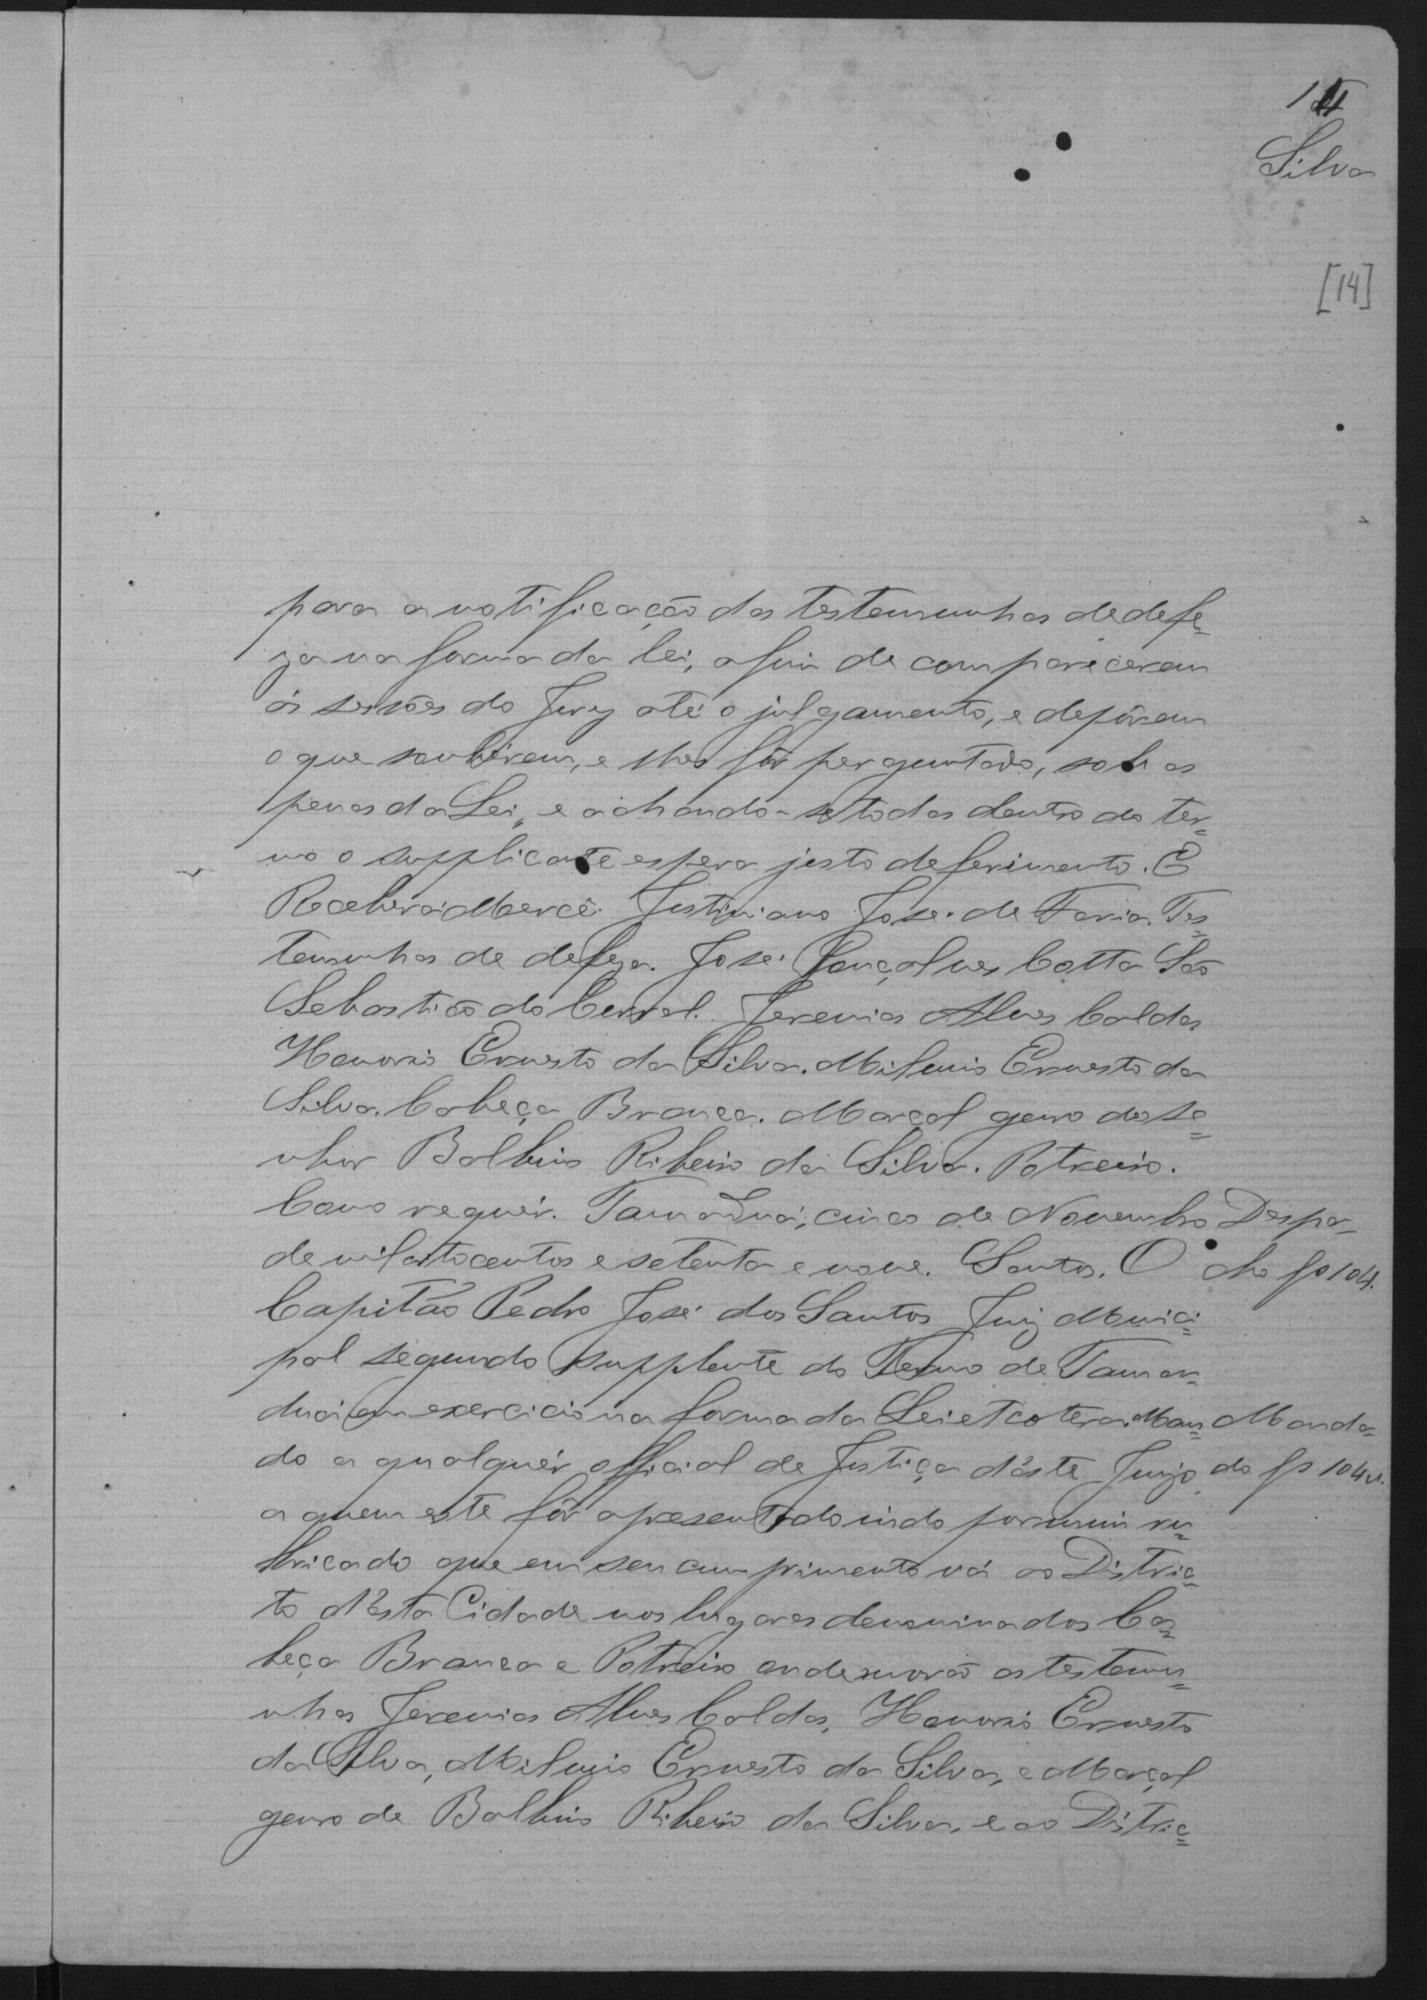 14
Silva
[14]
para a notificação das testemunhas de defe=
za na forma da lei, afim de comparecerem
ás sessões do Jury até o julgamento, e depôrem
o que soubérem, e lhes fôr perguntado, sob as
penas da Lei, e achando-se todas dentro do ter=
mo o supplicante espera justo deferimento. E
Receberá Mercê. Justiniano José de Faria. Tes=
temunhas de defeza. José Gonçalves Cotta São
Sebastião do Curral. Jeremias Alves Caldas
Honorio Ernesto da Silva. Milenio Ernesto da
Silva. Cabeça Branca. Marçal genro do Se=
nhor Balbino Ribeiro da Silva. Potreiro.
Como requér. Tamanduá, cinco de Novembro Despa=
de mil oitocentos e setenta e nove. Santos. O cho fs 104.
Capitão Pedro José dos Santos Juiz Munici=
pal segundo supplente do Termo de Taman=
duá em exercicio na forma da Lei etcetera. Man= Manda=
do a qualquér official de Justiça d'éste Juizo do fs 104v.
a quem este fôr apresentado indo por mim ru=
bricado que em seu cumprimento vá ao Distric=
to d'ésta Cidade nos lugares denominados Ca=
beça Branca e Potreiro onde morão as testemu=
nhas Jeremias Alves Caldas, Honorio Ernesto
da Silva, Milenio Ernesto da Silva, e Marçal
genro de Balbino Ribeiro da Silva, e ao Distric=